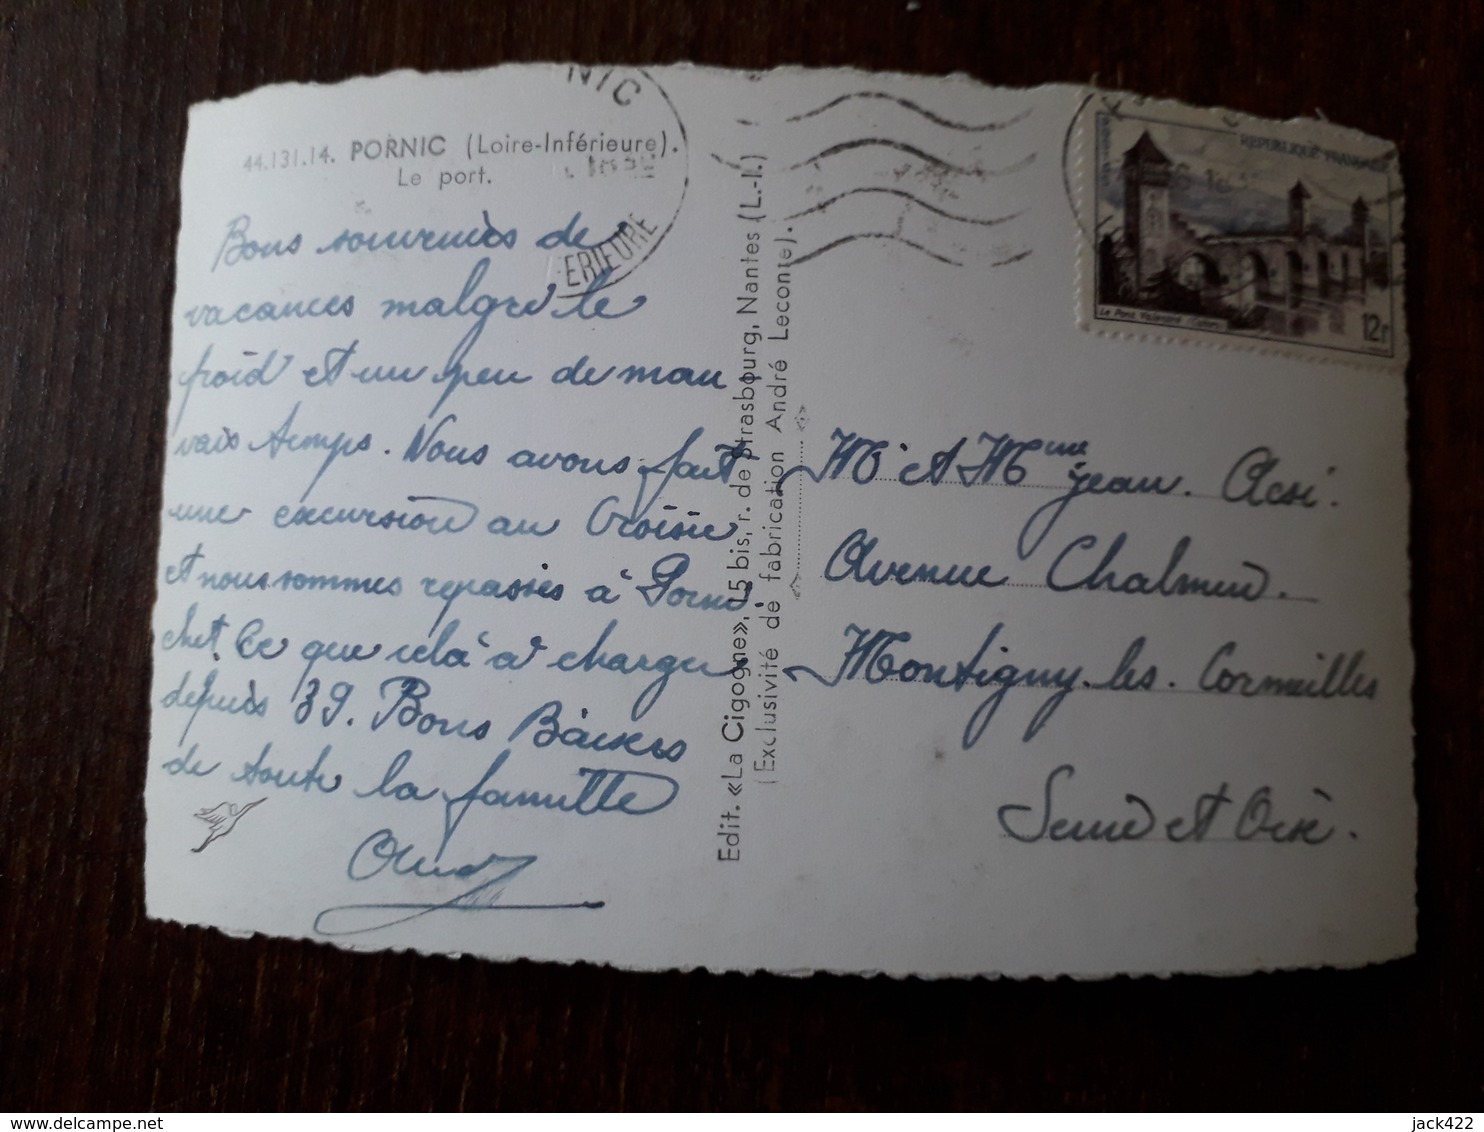 44.131.14. PORNIC (Loire-Inférieure).
Le port.
NIC
ERIEURE
Bons souvenirs de
vacances malgré le
froid et un peu de mau
vais temps. Nous avons fait
une excursion au Croisic
et nous sommes repassés à Porni
chet. Ce que celà a changer
depuis 39. Bons Baisers
de toute la famille
Edit. «La Cigogne», 15 bis, r. de Strasbourg, Nantes (L.-I.)
(Exclusivité de fabrication André Leconte).
REPUBLIQUE FRANÇAISE
Le Pont Valentré (Cahors)
12F
Mr et Mme Jean.
Avenue
Montigny-les-Cormeilles
Seine et Oise.
jack422